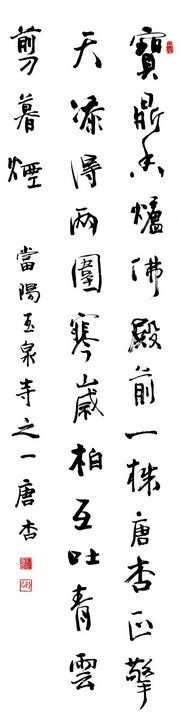 寶鼎香爐佛殿前一株唐杏正擎
天添得兩圍寒歲柏互吐青雲
剪暮煙 當陽玉泉寺之一唐杏